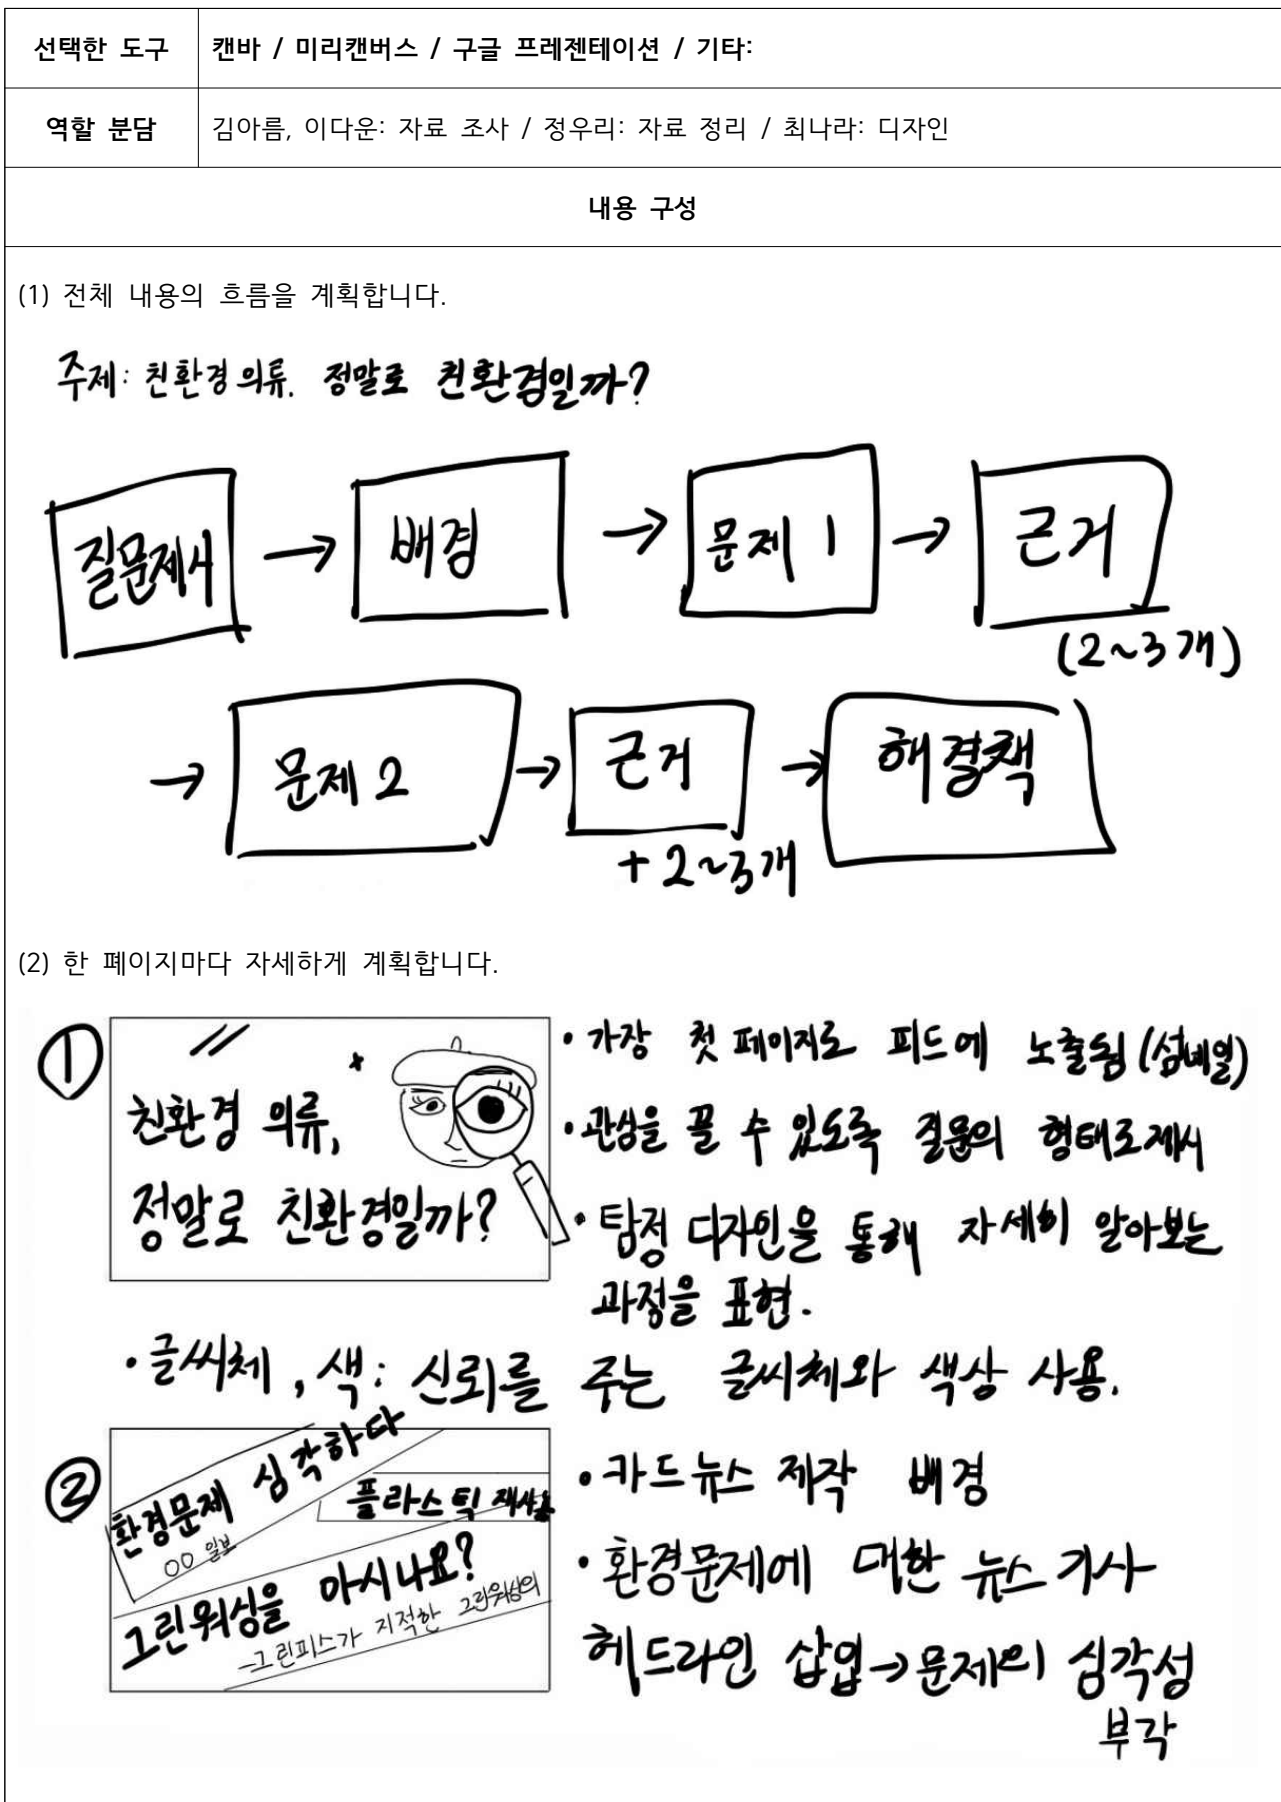 선택한 도구
캔바 / 미리캔버스 / 구글 프레젠테이션 / 기타:
역할 분담
김아름, 이다운: 자료 조사 / 정우리: 자료 정리 / 최나라: 디자인
내용 구성
(1) 전체 내용의 흐름을 계획합니다.
주제: 친환경 의류. 정말로 친환경일까?
질문제시 → 배경 → 문제 1 → 근거
(2~3개)
→ 문제 2 → 근거 → 해결책
+ 2~3개
(2) 한 페이지마다 자세하게 계획합니다.
①
친환경 의류,
정말로 친환경일까?
• 가장 첫 페이지로 피드에 노출됨 (섬네일)
• 관심을 끌 수 있도록 질문의 형태로 제시
• 탐정 디자인을 통해 자세히 알아보는
과정을 표현.
• 글씨체, 색: 신뢰를 주는 글씨체와 색상 사용.
②
환경문제 심각하다
○○ 일보
플라스틱 재사용
그린워싱을 아시나요?
-그린피스가 지적한 그린워싱의
• 카드뉴스 제작 배경
• 환경문제에 대한 뉴스 기사
헤드라인 삽입→문제의 심각성
부각